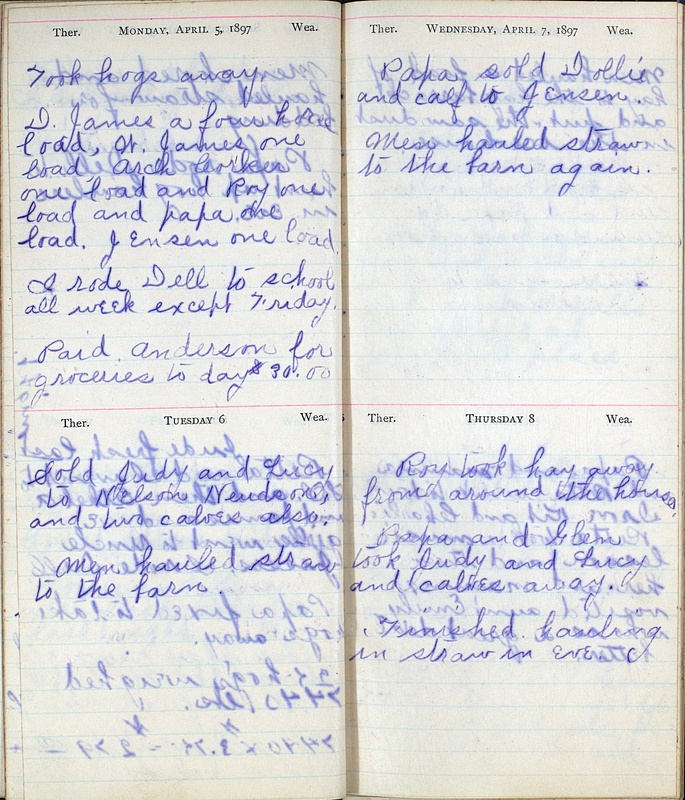 Ther. MONDAY, APRIL 5, 1897 Wea.
Took hogs away
D. James a four horse
load, W. James one
load Arch
one load and Roy one
load and papa one
load. J Ensen one load
I rode Dell to school
all week except Friday.
Paid Anderson for
groceries to day $30.00
Ther. TUESDAY 6 Wea.
Sold Judy and Lucy
to Nelson
and two calves also.
Men hauled straw
to the barn.
Ther. WEDNESDAY, APRIL 7, 1897 Wea.
Papa sold Dollie
and calf to Jensen.
Men hauled straw
to the barn again.
Ther. THURSDAY 8 Wea.
Roy took hay away
from around the house.
Papa and Glen
took Judy and Lucy
and calves away.
Finished hauling
in straw in eve.